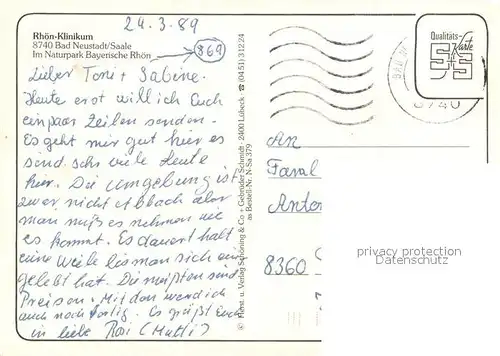 24.3.89
Rhön-Klinikum
8740 Bad Neustadt/Saale
Im Naturpark Bayerische Rhön
869
Lieber Toni + Sabine.
Heute erst will ich Euch
ein paar Zeilen senden.
Es geht mir gut hier es
send sehr viele Leute
hier. Die Umgebung ist
zwar nicht Ablach aber
man muß es nehmen wie
es kommt. Es dauert halt
eine Weile bis man sich ein
gelebt hat. Die meißten sind
Preisen. Mit den werd ich
auch noch fertig. Es grüßt Euch
in liebe Rosi (Mutti)
© Herst. u. Verlag Schöning & Co + Gebrüder Schmidt · 2400 Lübeck · ☎ (04 51) 3 12 24
Bestell-Nr. N-Sa 379
Qualitäts-
Karte
S+S
8740
An
Faml
Anton
8360
privacy protection
Datenschutz